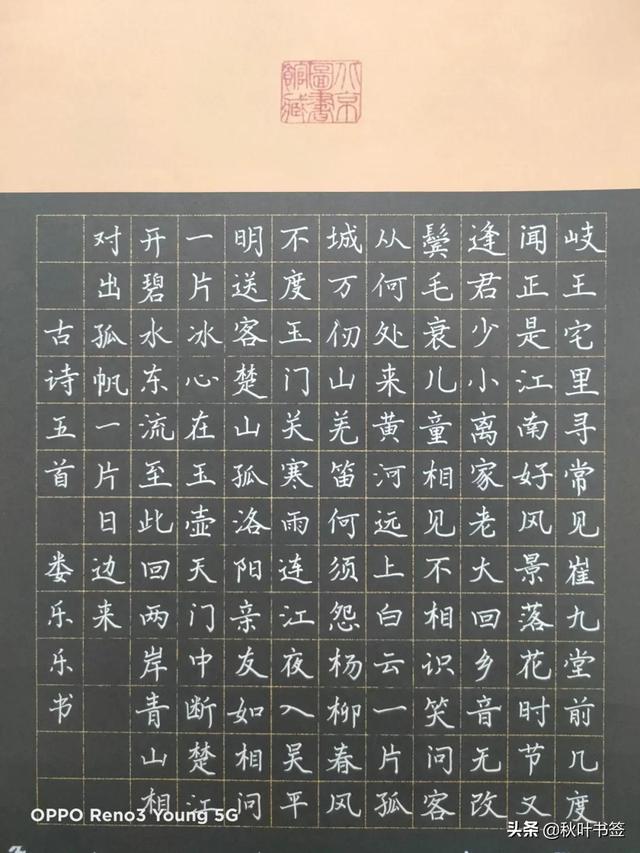 北京
圖書
館藏
岐王宅里寻常见崔九堂前几度
闻正是江南好风景落花时节又
逢君少小离家老大回乡音无改
鬓毛衰儿童相见不相识笑问客
从何处来黄河远上白云一片孤
城万仞山羌笛何须怨杨柳春风
不度玉门关寒雨连江夜入吴平
明送客楚山孤洛阳亲友如相问
一片冰心在玉壶天门中断楚江
开碧水东流至此回两岸青山相
对出孤帆一片日边来
古诗五首 娄乐乐书
OPPO Reno3 Young 5G
头条 @秋叶书签